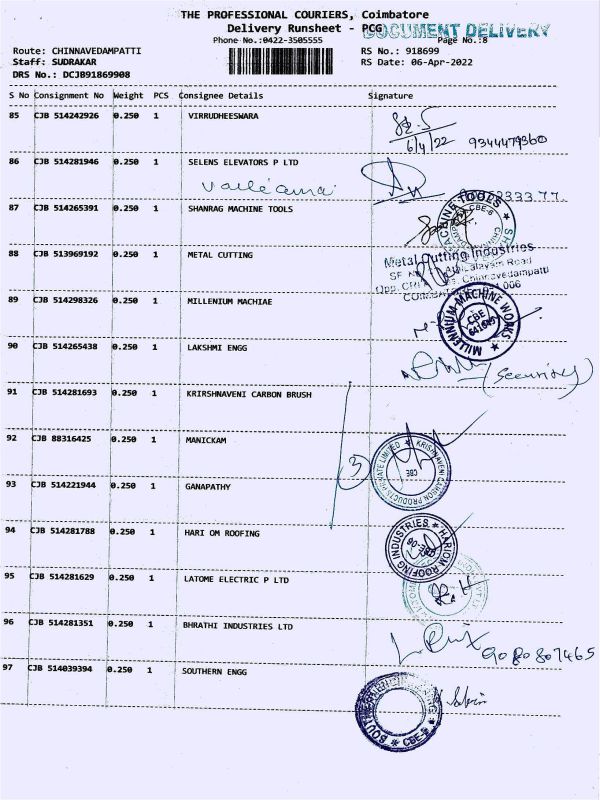 THE PROFESSIONAL COURIERS, Coimbatore
Delivery Runsheet - PCG
DOCUMENT DELIVERY
Phone No.:0422-3505555
Page No.:8
Route: CHINNAVEDAMPATTI
RS No.: 918699
Staff: SUDRAKAR
RS Date: 06-Apr-2022
DRS No.: DCJB91869908
S No Consignment No Weight PCS Consignee Details Signature
85 CJB 514242926 0.250 1 VIRRUDHEESWARA
6/4/22 9344479360
86 CJB 514281946 0.250 1 SELENS ELEVATORS P LTD
87 CJB 514265391 0.250 1 SHANRAG MACHINE TOOLS
MACHINE TOOLS CBE-6
88 CJB 513969192 0.250 1 METAL CUTTING
Metal Cutting Industries
89 CJB 514298326 0.250 1 MILLENIUM MACHIAE
MILLENNIUM MACHINE WORKS CBE
90 CJB 514265438 0.250 1 LAKSHMI ENGG
(Security)
91 CJB 514281693 0.250 1 KRIRSHNAVENI CARBON BRUSH
92 CJB 88316425 0.250 1 MANICKAM
KRISHNAVENI CARBON PRODUCTS PRIVATE LIMITED CBE
93 CJB 514221944 0.250 1 GANAPATHY
94 CJB 514281788 0.250 1 HARI OM ROOFING
HARIOM ROOFING INDUSTRIES
95 CJB 514281629 0.250 1 LATOME ELECTRIC P LTD
96 CJB 514281351 0.250 1 BHRATHI INDUSTRIES LTD
9080807465
97 CJB 514039394 0.250 1 SOUTHERN ENGG
CBE-6